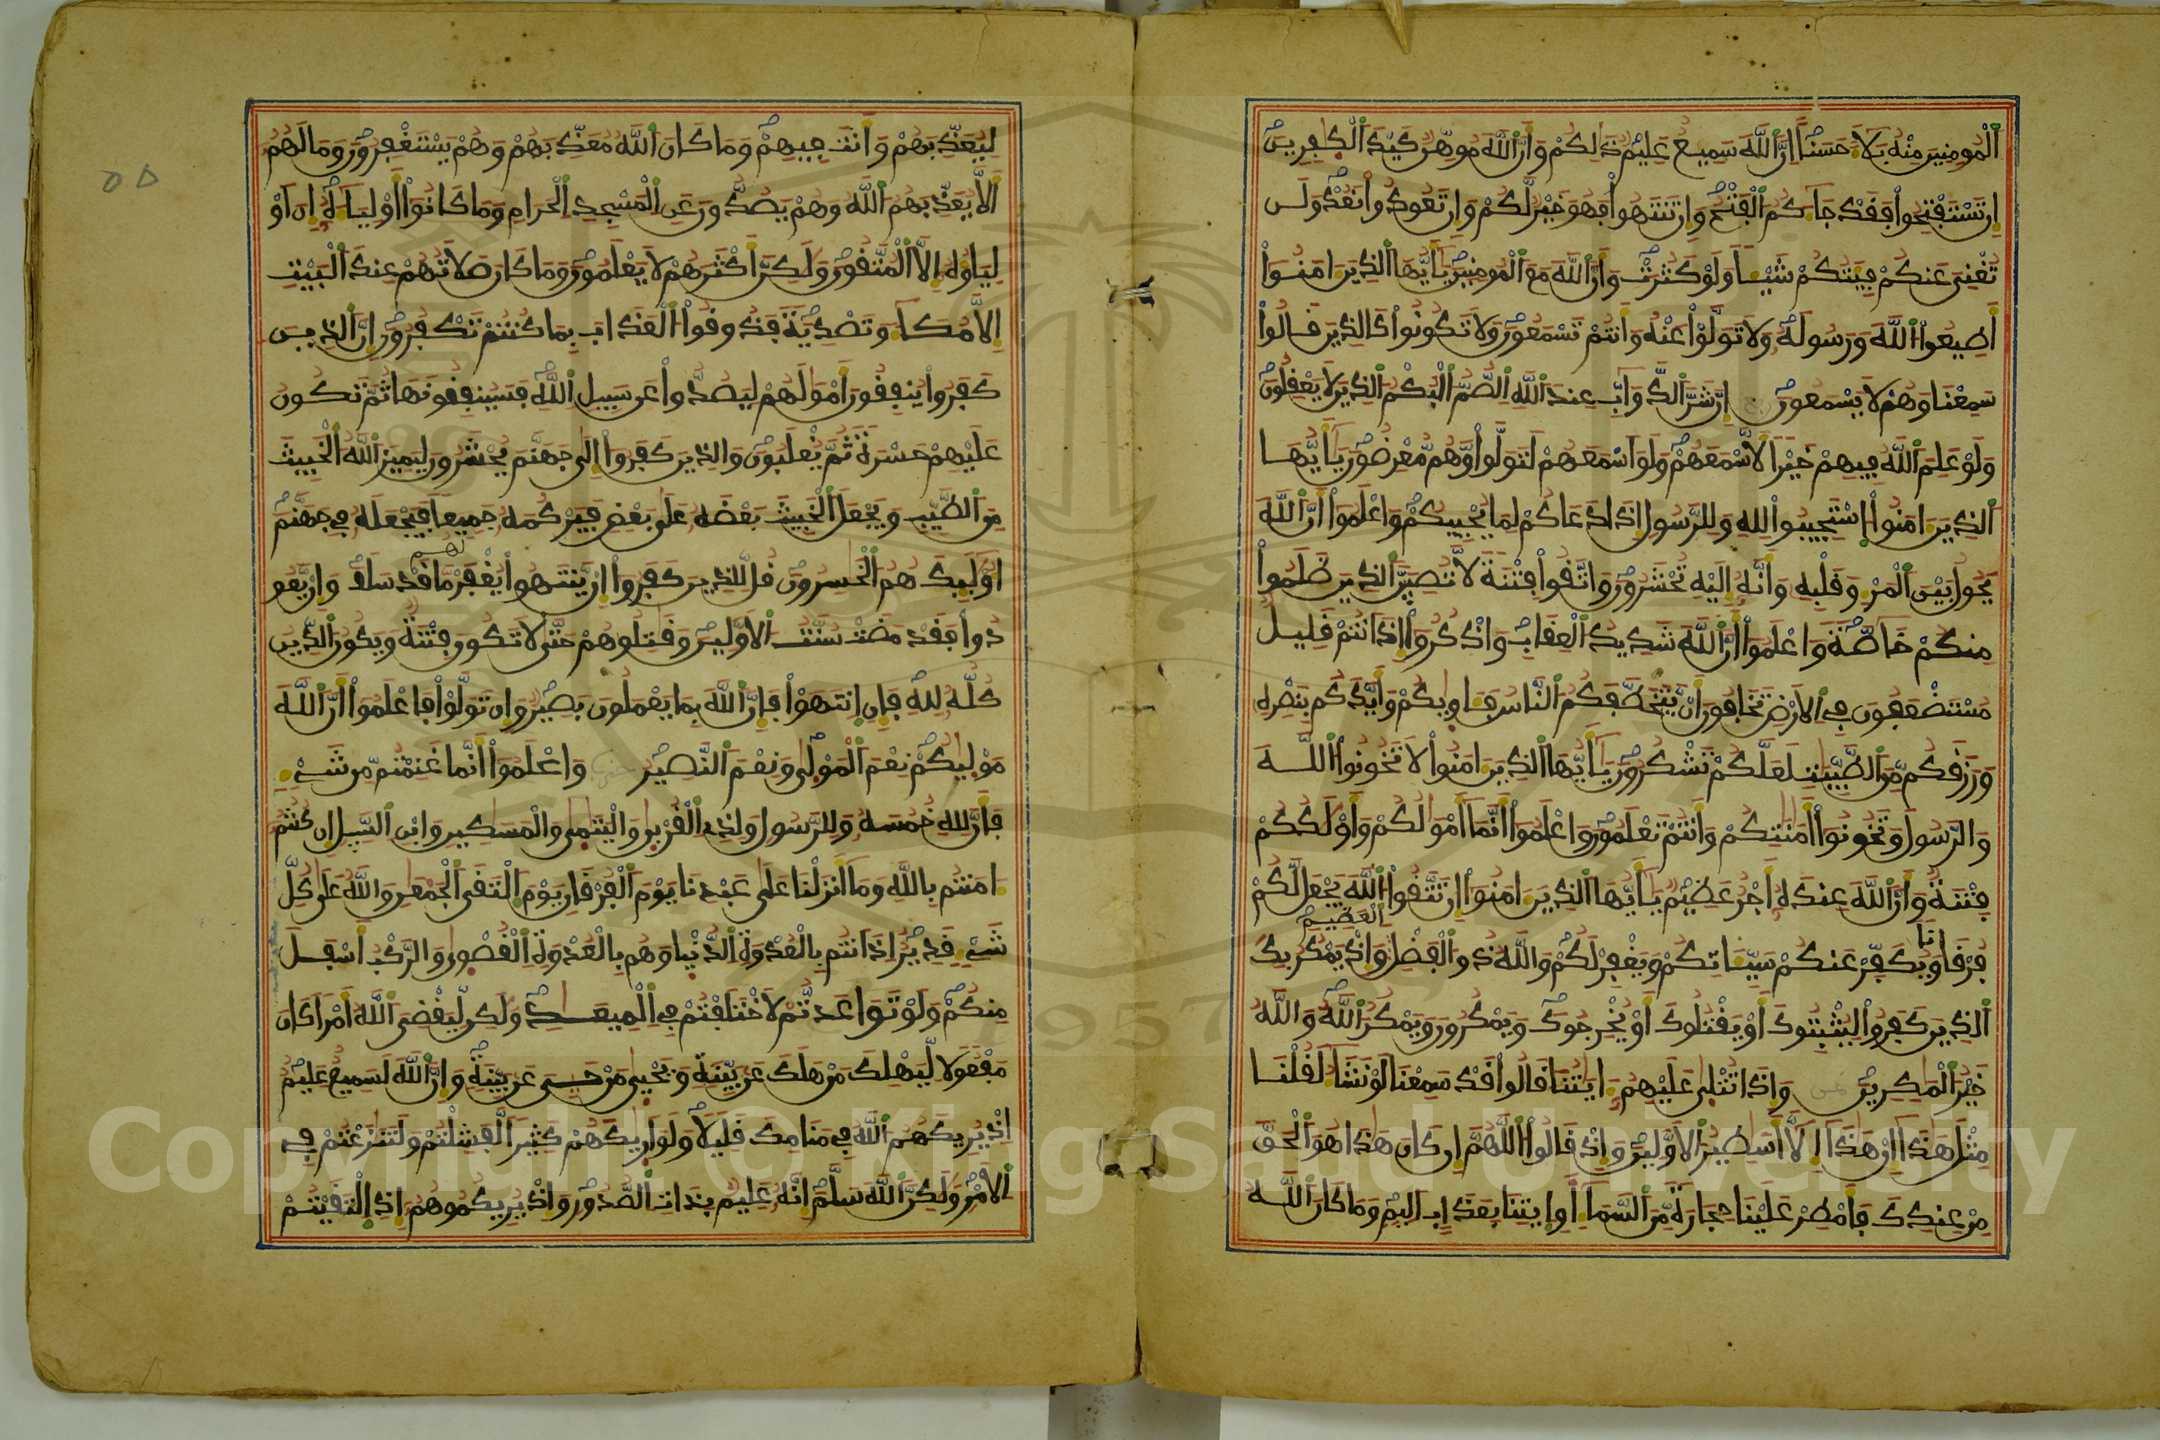 ٱلْمُومِنِينَ مِنْهُ بَلَآءً حَسَنًا إِنَّ ٱللَّهَ سَمِيعٌ عَلِيمٌ ذَٰلِكُمْ وَأَنَّ ٱللَّهَ مُوَهِّنٌ كَيْدَ ٱلْكَٰفِرِينَ
إِن تَسْتَفْتِحُوا۟ فَقَدْ جَآءَكُمُ ٱلْفَتْحُ وَإِن تَنتَهُوا۟ فَهُوَ خَيْرٌ لَّكُمْ وَإِن تَعُودُوا۟ نَعُدْ وَلَن
تُغْنِىَ عَنكُمْ فِئَتُكُمْ شَيْـًٔا وَلَوْ كَثُرَتْ وَأَنَّ ٱللَّهَ مَعَ ٱلْمُومِنِينَ يَٰٓأَيُّهَا ٱلَّذِينَ ءَامَنُوٓا۟
أَطِيعُوا۟ ٱللَّهَ وَرَسُولَهُۥ وَلَا تَوَلَّوْا۟ عَنْهُ وَأَنتُمْ تَسْمَعُونَ وَلَا تَكُونُوا۟ كَٱلَّذِينَ قَالُوا۟
سَمِعْنَا وَهُمْ لَا يَسْمَعُونَ إِنَّ شَرَّ ٱلدَّوَآبِّ عِندَ ٱللَّهِ ٱلصُّمُّ ٱلْبُكْمُ ٱلَّذِينَ لَا يَعْقِلُونَ
وَلَوْ عَلِمَ ٱللَّهُ فِيهِمْ خَيْرًا لَّأَسْمَعَهُمْ وَلَوْ أَسْمَعَهُمْ لَتَوَلَّوا۟ وَّهُم مُّعْرِضُونَ يَٰٓأَيُّهَا
ٱلَّذِينَ ءَامَنُوا۟ ٱسْتَجِيبُوا۟ لِلَّهِ وَلِلرَّسُولِ إِذَا دَعَاكُمْ لِمَا يُحْيِيكُمْ وَٱعْلَمُوٓا۟ أَنَّ ٱللَّهَ
يَحُولُ بَيْنَ ٱلْمَرْءِ وَقَلْبِهِۦ وَأَنَّهُۥٓ إِلَيْهِ تُحْشَرُونَ وَٱتَّقُوا۟ فِتْنَةً لَّا تُصِيبَنَّ ٱلَّذِينَ ظَلَمُوا۟
مِنكُمْ خَآصَّةً وَٱعْلَمُوٓا۟ أَنَّ ٱللَّهَ شَدِيدُ ٱلْعِقَابِ وَٱذْكُرُوٓا۟ إِذْ أَنتُمْ قَلِيلٌ
مُّسْتَضْعَفُونَ فِى ٱلْأَرْضِ تَخَافُونَ أَن يَتَخَطَّفَكُمُ ٱلنَّاسُ فَـَٔاوَىٰكُمْ وَأَيَّدَكُم بِنَصْرِهِۦ
وَرَزَقَكُم مِّنَ ٱلطَّيِّبَٰتِ لَعَلَّكُمْ تَشْكُرُونَ يَٰٓأَيُّهَا ٱلَّذِينَ ءَامَنُوا۟ لَا تَخُونُوا۟ ٱللَّهَ
وَٱلرَّسُولَ وَتَخُونُوٓا۟ أَمَٰنَٰتِكُمْ وَأَنتُمْ تَعْلَمُونَ وَٱعْلَمُوٓا۟ أَنَّمَآ أَمْوَٰلُكُمْ وَأَوْلَٰدُكُمْ
فِتْنَةٌ وَأَنَّ ٱللَّهَ عِندَهُۥٓ أَجْرٌ عَظِيمٌ يَٰٓأَيُّهَا ٱلَّذِينَ ءَامَنُوٓا۟ إِن تَتَّقُوا۟ ٱللَّهَ يَجْعَل لَّكُمْ
فُرْقَانًا وَيُكَفِّرْ عَنكُمْ سَيِّـَٔاتِكُمْ وَيَغْفِرْ لَكُمْ وَٱللَّهُ ذُو ٱلْفَضْلِ ٱلْعَظِيمِ وَإِذْ يَمْكُرُ بِكَ
ٱلَّذِينَ كَفَرُوا۟ لِيُثْبِتُوكَ أَوْ يَقْتُلُوكَ أَوْ يُخْرِجُوكَ وَيَمْكُرُونَ وَيَمْكُرُ ٱللَّهُ وَٱللَّهُ
خَيْرُ ٱلْمَٰكِرِينَ وَإِذَا تُتْلَىٰ عَلَيْهِمُۥٓ ءَايَٰتُنَا قَالُوا۟ قَدْ سَمِعْنَا لَوْ نَشَآءُ لَقُلْنَا
مِثْلَ هَٰذَآ إِنْ هَٰذَآ إِلَّآ أَسَٰطِيرُ ٱلْأَوَّلِينَ وَإِذْ قَالُوا۟ ٱللَّهُمَّ إِن كَانَ هَٰذَا هُوَ ٱلْحَقَّ
مِنْ عِندِكَ فَأَمْطِرْ عَلَيْنَا حِجَارَةً مِّنَ ٱلسَّمَآءِ أَوِ ٱئْتِنَا بِعَذَابٍ أَلِيمٍ وَمَا كَانَ ٱللَّهُ
لِيُعَذِّبَهُمْ وَأَنتَ فِيهِمْ وَمَا كَانَ ٱللَّهُ مُعَذِّبَهُمْ وَهُمْ يَسْتَغْفِرُونَ وَمَا لَهُمُۥٓ
أَلَّا يُعَذِّبَهُمُ ٱللَّهُ وَهُمْ يَصُدُّونَ عَنِ ٱلْمَسْجِدِ ٱلْحَرَامِ وَمَا كَانُوٓا۟ أَوْلِيَآءَهُۥٓ إِنْ أَوْ
لِيَآؤُهُۥٓ إِلَّا ٱلْمُتَّقُونَ وَلَٰكِنَّ أَكْثَرَهُمْ لَا يَعْلَمُونَ وَمَا كَانَ صَلَاتُهُمْ عِندَ ٱلْبَيْتِ
إِلَّا مُكَآءً وَتَصْدِيَةً فَذُوقُوا۟ ٱلْعَذَابَ بِمَا كُنتُمْ تَكْفُرُونَ إِنَّ ٱلَّذِينَ
كَفَرُوا۟ يُنفِقُونَ أَمْوَٰلَهُمْ لِيَصُدُّوا۟ عَن سَبِيلِ ٱللَّهِ فَسَيُنفِقُونَهَا ثُمَّ تَكُونُ
عَلَيْهِمْ حَسْرَةً ثُمَّ يُغْلَبُونَ وَٱلَّذِينَ كَفَرُوٓا۟ إِلَىٰ جَهَنَّمَ يُحْشَرُونَ لِيَمِيزَ ٱللَّهُ ٱلْخَبِيثَ
مِنَ ٱلطَّيِّبِ وَيَجْعَلَ ٱلْخَبِيثَ بَعْضَهُۥ عَلَىٰ بَعْضٍ فَيَرْكُمَهُۥ جَمِيعًا فَيَجْعَلَهُۥ فِى جَهَنَّمَ
أُو۟لَٰٓئِكَ هُمُ ٱلْخَٰسِرُونَ قُل لِّلَّذِينَ كَفَرُوٓا۟ إِن يَنتَهُوا۟ يُغْفَرْ لَهُم مَّا قَدْ سَلَفَ وَإِن يَّعُو
دُوا۟ فَقَدْ مَضَتْ سُنَّتُ ٱلْأَوَّلِينَ وَقَٰتِلُوهُمْ حَتَّىٰ لَا تَكُونَ فِتْنَةٌ وَيَكُونَ ٱلدِّينُ
كُلُّهُۥ لِلَّهِ فَإِنِ ٱنتَهَوْا۟ فَإِنَّ ٱللَّهَ بِمَا يَعْمَلُونَ بَصِيرٌ وَإِن تَوَلَّوْا۟ فَٱعْلَمُوٓا۟ أَنَّ ٱللَّهَ
مَوْلَىٰكُمْ نِعْمَ ٱلْمَوْلَىٰ وَنِعْمَ ٱلنَّصِيرُ وَٱعْلَمُوٓا۟ أَنَّمَا غَنِمْتُم مِّن شَىْءٍ
فَأَنَّ لِلَّهِ خُمُسَهُۥ وَلِلرَّسُولِ وَلِذِى ٱلْقُرْبَىٰ وَٱلْيَتَٰمَىٰ وَٱلْمَسَٰكِينِ وَٱبْنِ ٱلسَّبِيلِ إِن كُنتُمُۥٓ
ءَامَنتُم بِٱللَّهِ وَمَآ أَنزَلْنَا عَلَىٰ عَبْدِنَا يَوْمَ ٱلْفُرْقَانِ يَوْمَ ٱلْتَقَى ٱلْجَمْعَٰنِ وَٱللَّهُ عَلَىٰ كُلِّ
شَىْءٍ قَدِيرٌ إِذْ أَنتُم بِٱلْعُدْوَةِ ٱلدُّنْيَا وَهُم بِٱلْعُدْوَةِ ٱلْقُصْوَىٰ وَٱلرَّكْبُ أَسْفَلَ
مِنكُمْ وَلَوْ تَوَاعَدتُّمْ لَٱخْتَلَفْتُمْ فِى ٱلْمِيعَٰدِ وَلَٰكِن لِّيَقْضِىَ ٱللَّهُ أَمْرًا كَانَ
مَفْعُولًا لِّيَهْلِكَ مَنْ هَلَكَ عَن بَيِّنَةٍ وَيَحْيَىٰ مَنْ حَيِىَ عَن بَيِّنَةٍ وَإِنَّ ٱللَّهَ لَسَمِيعٌ عَلِيمٌ
إِذْ يُرِيكَهُمُ ٱللَّهُ فِى مَنَامِكَ قَلِيلًا وَلَوْ أَرَىٰكَهُمْ كَثِيرًا لَّفَشِلْتُمْ وَلَتَنَٰزَعْتُمْ فِى
ٱلْأَمْرِ وَلَٰكِنَّ ٱللَّهَ سَلَّمَ إِنَّهُۥ عَلِيمٌۢ بِذَاتِ ٱلصُّدُورِ وَإِذْ يُرِيكُمُوهُمُۥٓ إِذِ ٱلْتَقَيْتُمْ
Copyright © King Saud University
1957